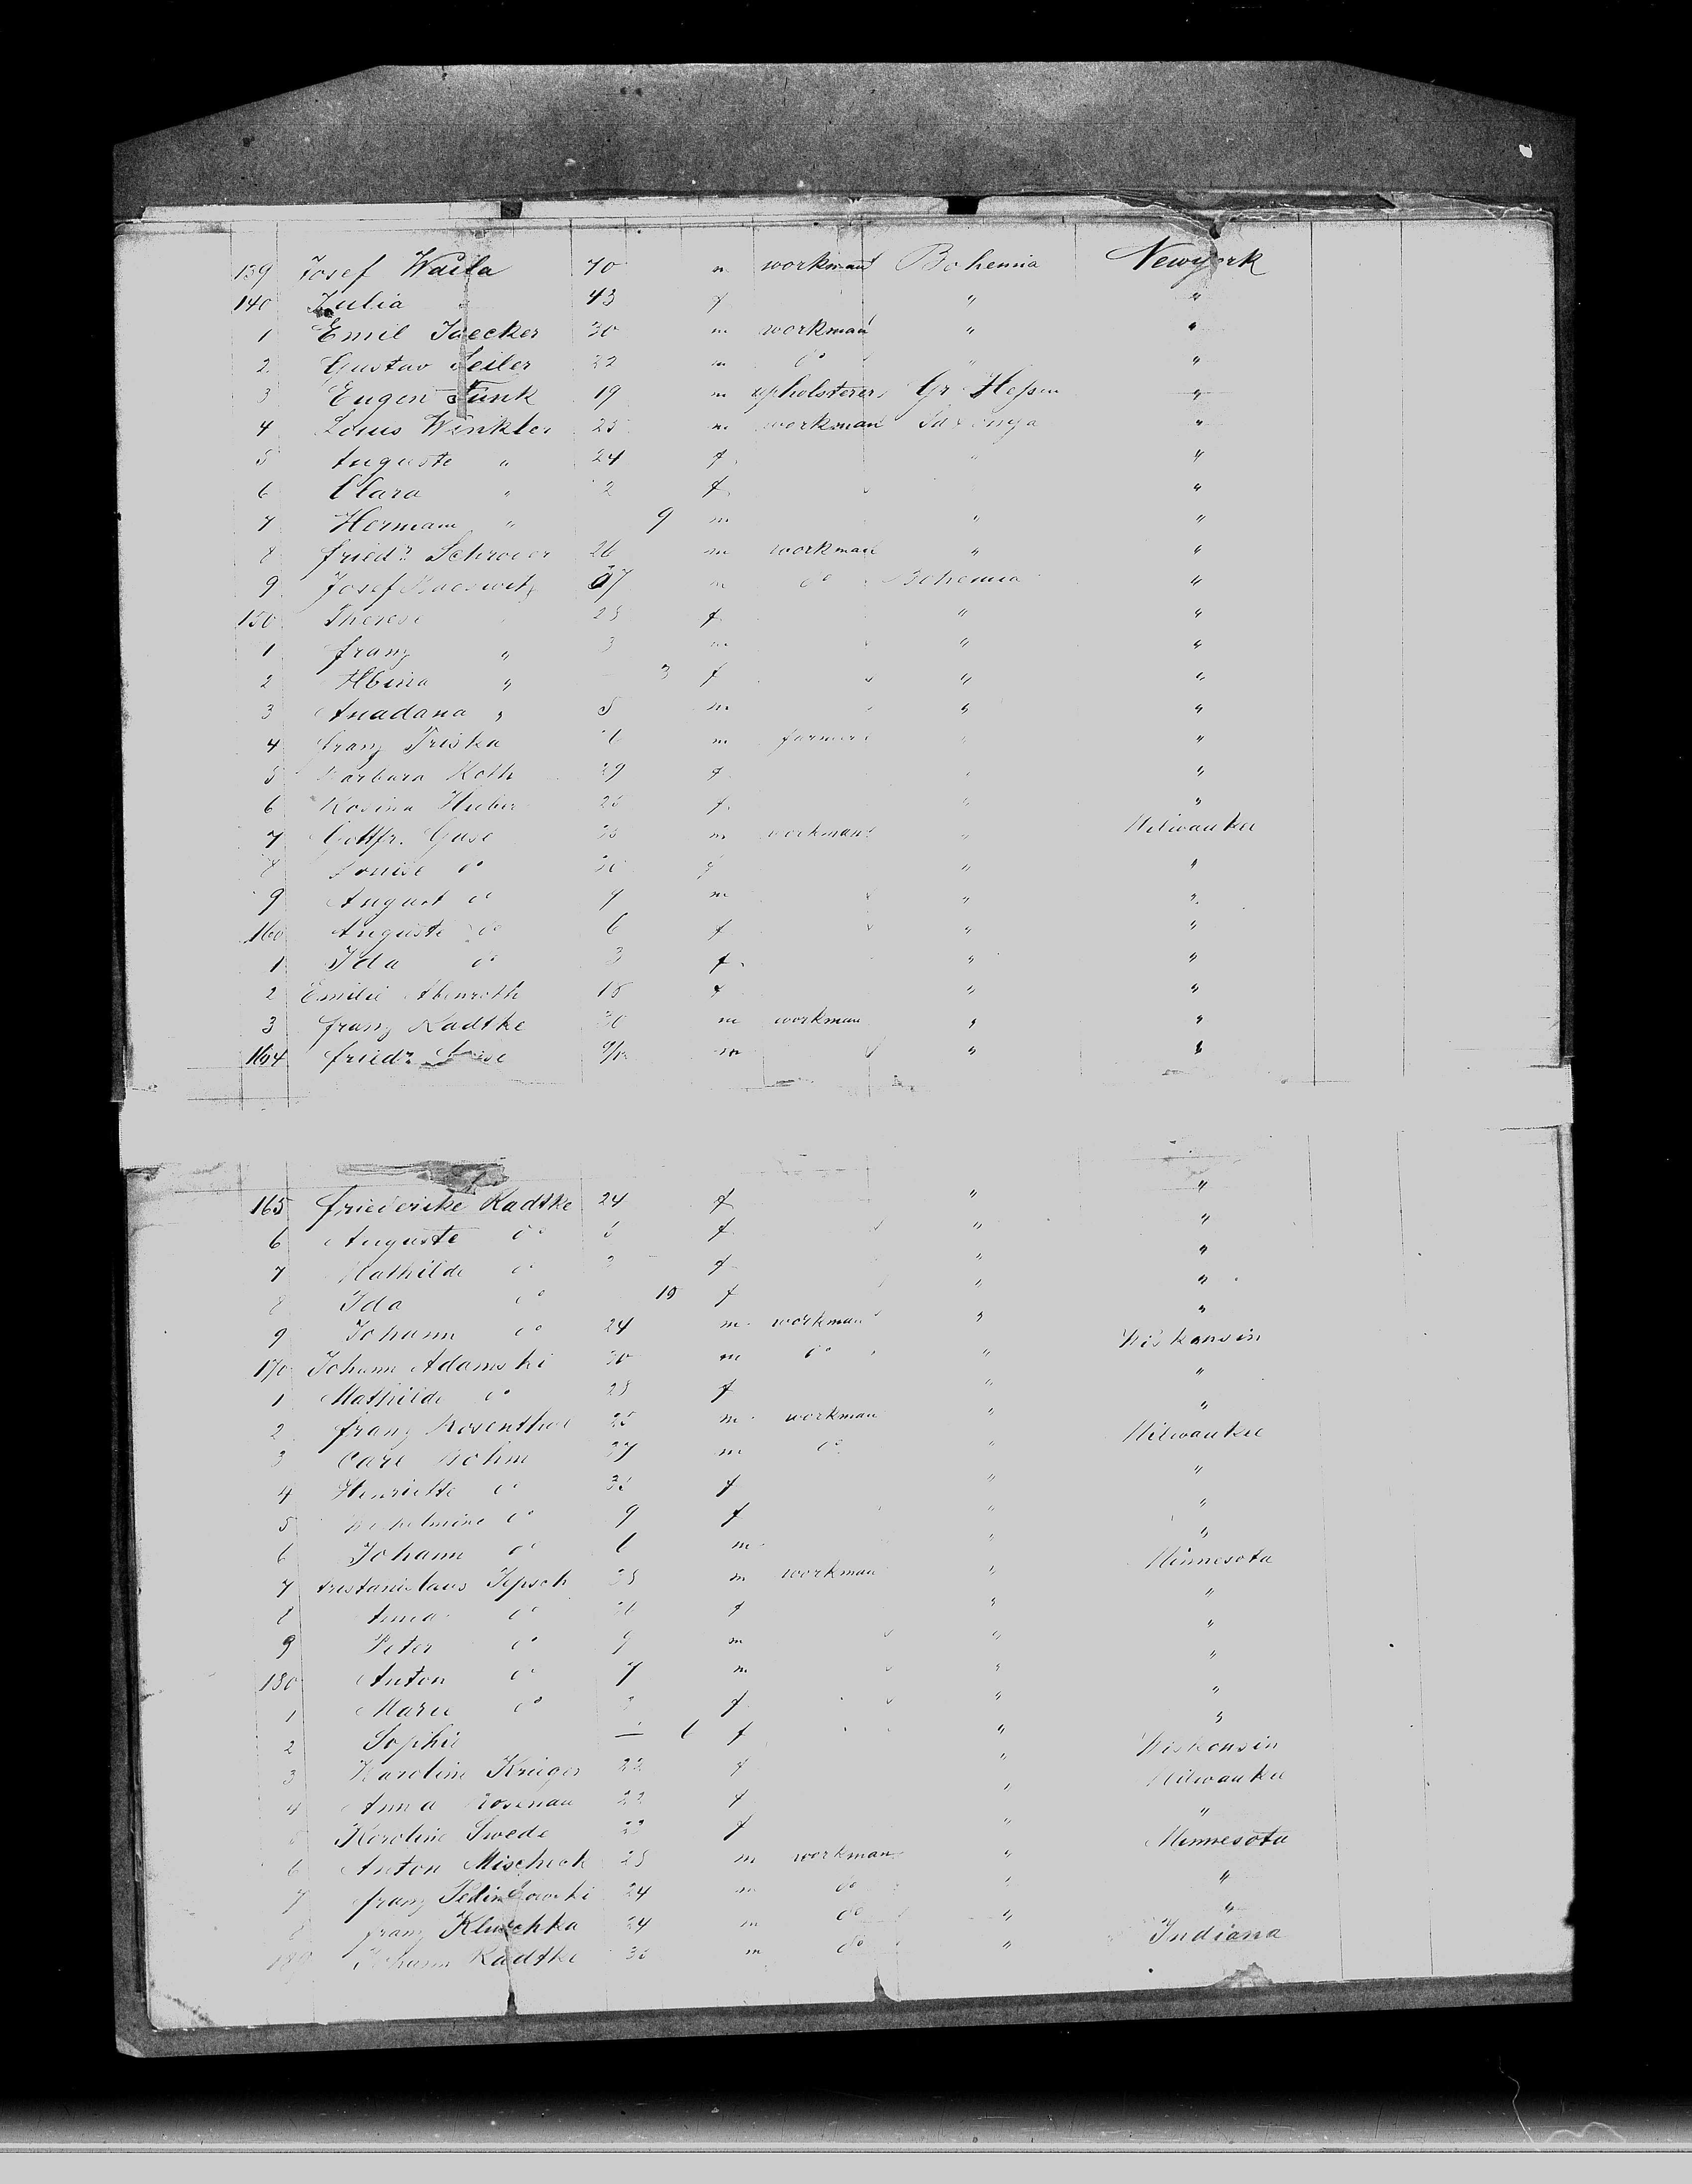 139 Josef Waila 40 m workman Bohemia Newyork
140 Julia 43 f " "
1 Emil Jaecker 30 m workman " "
2 Gustav Seiler 22 m do " "
3 Eugen Funk 19 m upholsterer Gr Hessen "
4 Louis Winkler 25 m workman "
5 Auguste " 24 f " "
6 Clara " 2 f "
7 Hermann " 9 m " "
8 friedr. 26 m workman " "
9 Josef m do Bohemia "
150 Therese f " "
1 franz " 3 m " "
2 Albina " 3 f " "
3 " m " "
4 franz Triska m farmer " "
5 Barbara Roth 29 f " "
6 Rosina Huber f " "
7 Gottfr. Guse m workman " Milwaukee
8 Louise do f " "
9 August do m " "
160 Auguste do 6 f " "
1 Ida do 3 f " "
2 Emilie 18 f " "
3 franz Radtke 30 m workman " "
164 friedr. m " "
165 friederike Radtke 24 f " "
6 Auguste do f " "
7 Mathilde do f " "
8 Ida do 10 f " "
9 Johann do 24 m workman " "
170 Johann Adamski 30 m do " Wiskonsin
1 Mathilde do 28 f " "
2 franz Rosenthal m workman " "
3 Carl Böhm 37 m do " Milwaukee
4 Henriette do f " "
5 Wilhelmine do 9 f " "
6 Johann do 6 m " "
7 Jepsch m workman " Minnesota
8 Anna do f " "
9 Peter do 9 m " "
180 Anton do 7 m " "
1 Marie do f " "
2 Sophie — 6 f " "
3 Karoline Krüger 22 f " Wiskonsin
4 Anna Rosenau 22 f " Milwaukee
5 Karoline Swede 23 f " "
6 Anton Mischeck 28 m workman " Minnesota
7 franz 24 m do " "
8 franz Kluschka 24 m do " "
189 Johann Radtke m do " Indiana